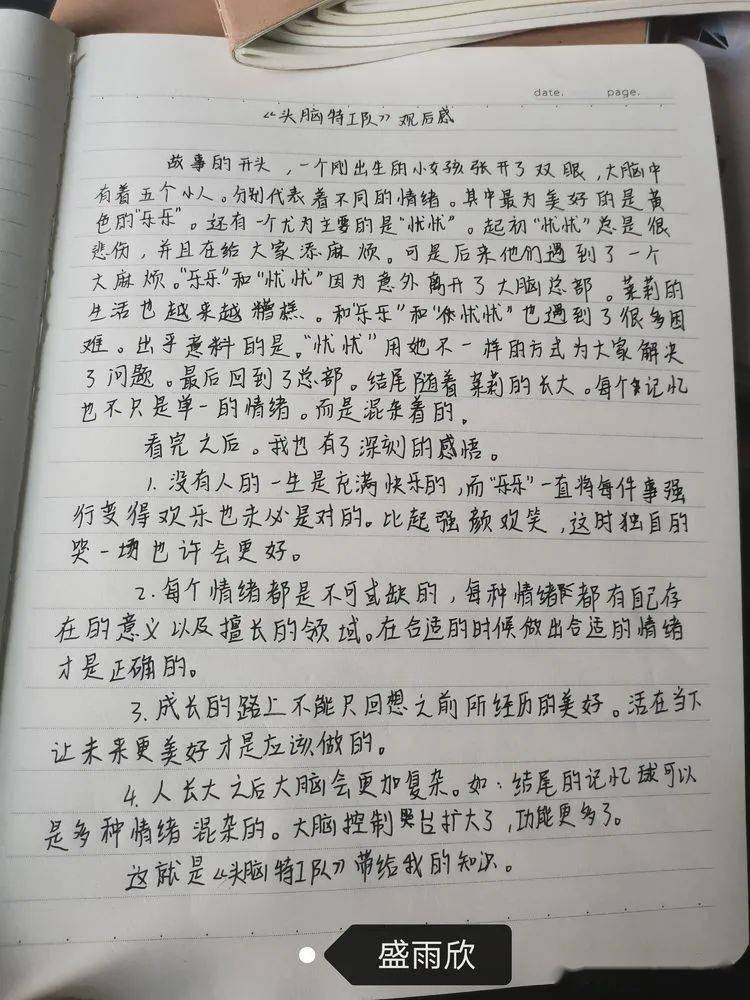 date. page.
《头脑特工队》观后感
故事的开头，一个刚出生的小女孩张开了双眼，大脑中
有着五个小人。分别代表着不同的情绪。其中最为美好的是黄
色的“乐乐”。还有一个尤为主要的是“忧忧”。起初“忧忧”总是很
悲伤，并且在给大家添麻烦。可是后来他们遇到了一个
大麻烦。“乐乐”和“忧忧”因为意外离开了大脑总部。茉莉的
生活也越来越糟糕。和“乐乐”和“忧忧”也遇到了很多困
难。出乎意料的是。“忧忧”用她不一样的方式为大家解决
了问题。最后回到了总部。结尾随着茉莉的长大。每个记忆
也不只是单一的情绪。而是混杂着的。
看完之后。我也有了深刻的感悟。
1. 没有人的一生是充满快乐的，而“乐乐”一直将每件事强
行变得欢乐也未必是对的。比起强颜欢笑，这时独自的
哭一场也许会更好。
2. 每个情绪都是不可或缺的，每种情绪都有自己存
在的意义以及擅长的领域。在合适的时候做出合适的情绪
才是正确的。
3. 成长的路上不能只回想之前所经历的美好。活在当下
让未来更美好才是应该做的。
4. 人长大之后大脑会更加复杂。如：结尾的记忆球可以
是多种情绪混杂的。大脑控制台扩大了，功能更多了。
这就是《头脑特工队》带给我的知识。
盛雨欣